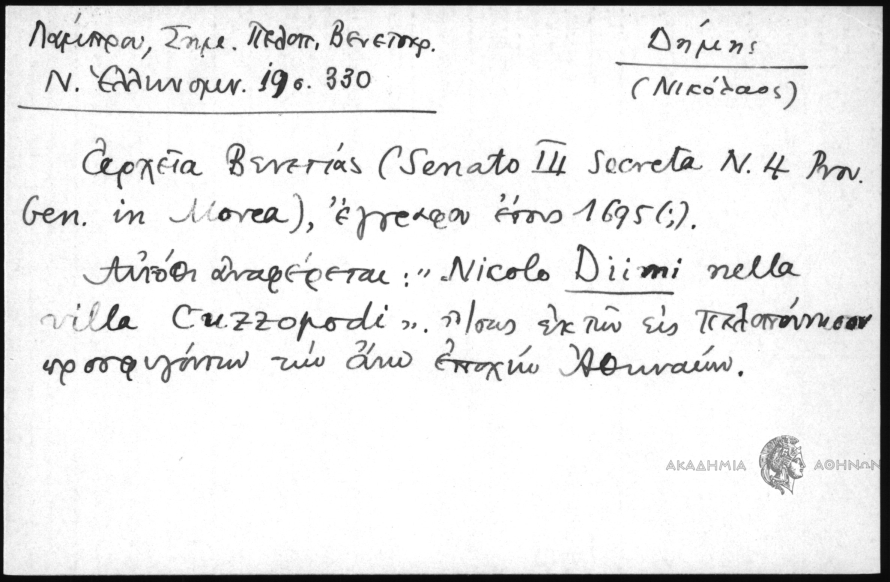 Λαμπρου, Σημ. Πελοπ. Βενετοκρ.
Ν. Ἑλληνομν. 19 σ. 330
Δήμης
(Νικόλαος)
Ἀρχεῖα Βενετίας (Senato III Secreta N. 4 Prov.
Gen. in Morea), ἔγγραφον ἔτους 1695(;).
Αὐτόθι ἀναφέρεται: "Nicolo Diimi nella
villa Cuzzopodi". Ἴσως ἐκ τῶν εἰς Πελοπόννησον
προσφυγόντων τὴν ἄνω ἐποχὴν Ἀθηναίων.
ΑΚΑΔΗΜΙΑ ΑΘΗΝΩΝ